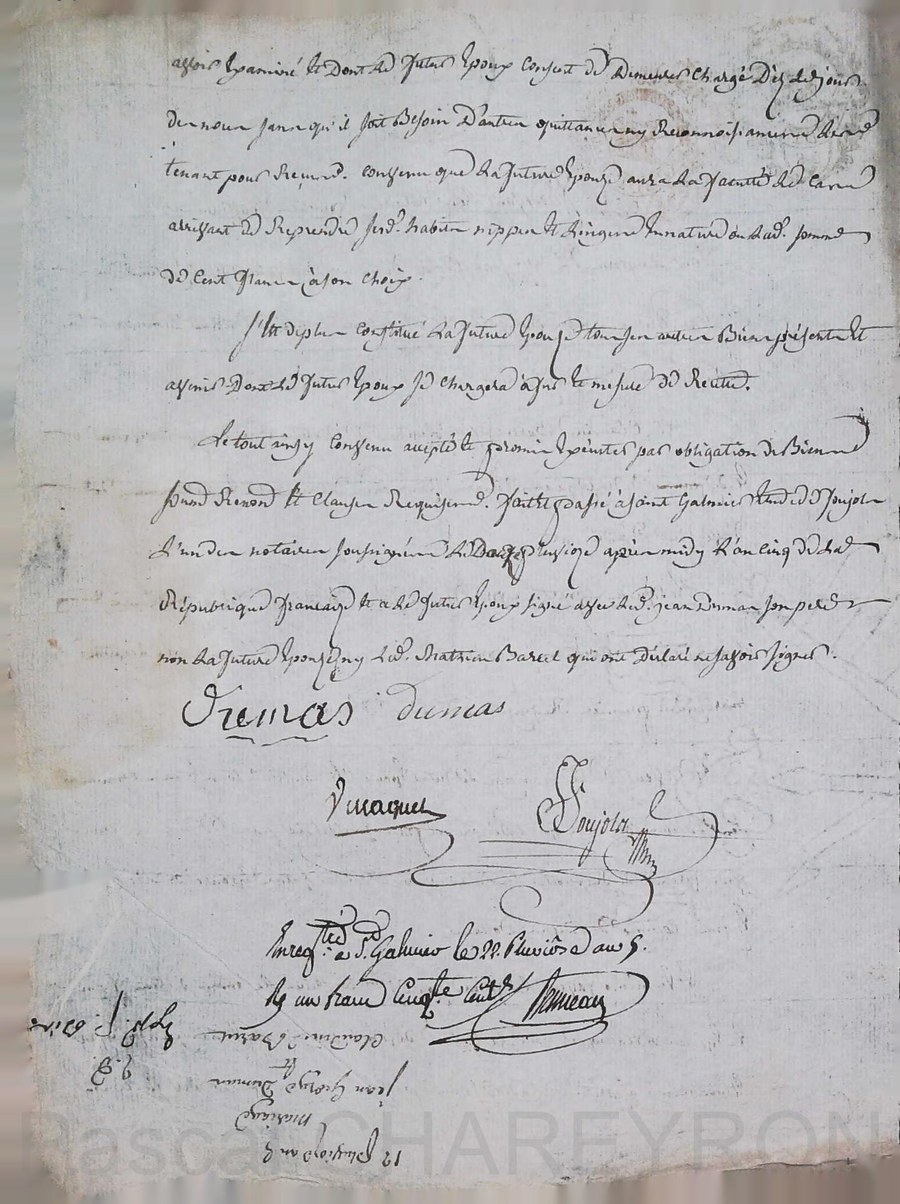 avoir Examiné Et Dont Le futur Epoux Consent de Demeurer Chargé Dèz Le jour
des noces sans qu'il soit Besoin D'autre quittance ny Reconnoissance Le
tenant pour Reçu. Convenu que La future Epouze aura La faculté Le Cas
arrivant De Reprendre sesd. habits nippes Et Lingerie En nature ou Lad. somme
de Cent francs à son Choix.
s'Est de plus Constitué La future Epouze tous ses autres Biens présents Et
avenir Dont Le futur Epoux se Chargera à fur Et mesure de Recette.
Le tout ainsy Convenu accepté Et promis Exécuter par obligation de Biens
soumis Renond. Et Clauses Requises. fait Et passé à saint Galmier Etude de Soujola
L'un des notaires soussignés Le Douze pluvioze après midy L'an Cinq de La
République francaize Et a Le futur Epoux signé avec Led. jean Dumas son pere
non La future Epouze ny Led. Mathieu Barcet qui ont Déclaré ne savoir signer.
Dumas dumas
Vinaquet Soujola
Enregtré à St. Galmier le 22. Pluviôse an 5.
Rç un franc Cinqte Centes
Claudine Barcet
Et
jean George Dumas
Mariage
12 pluvioze an 5
Pascal CHAREYRON